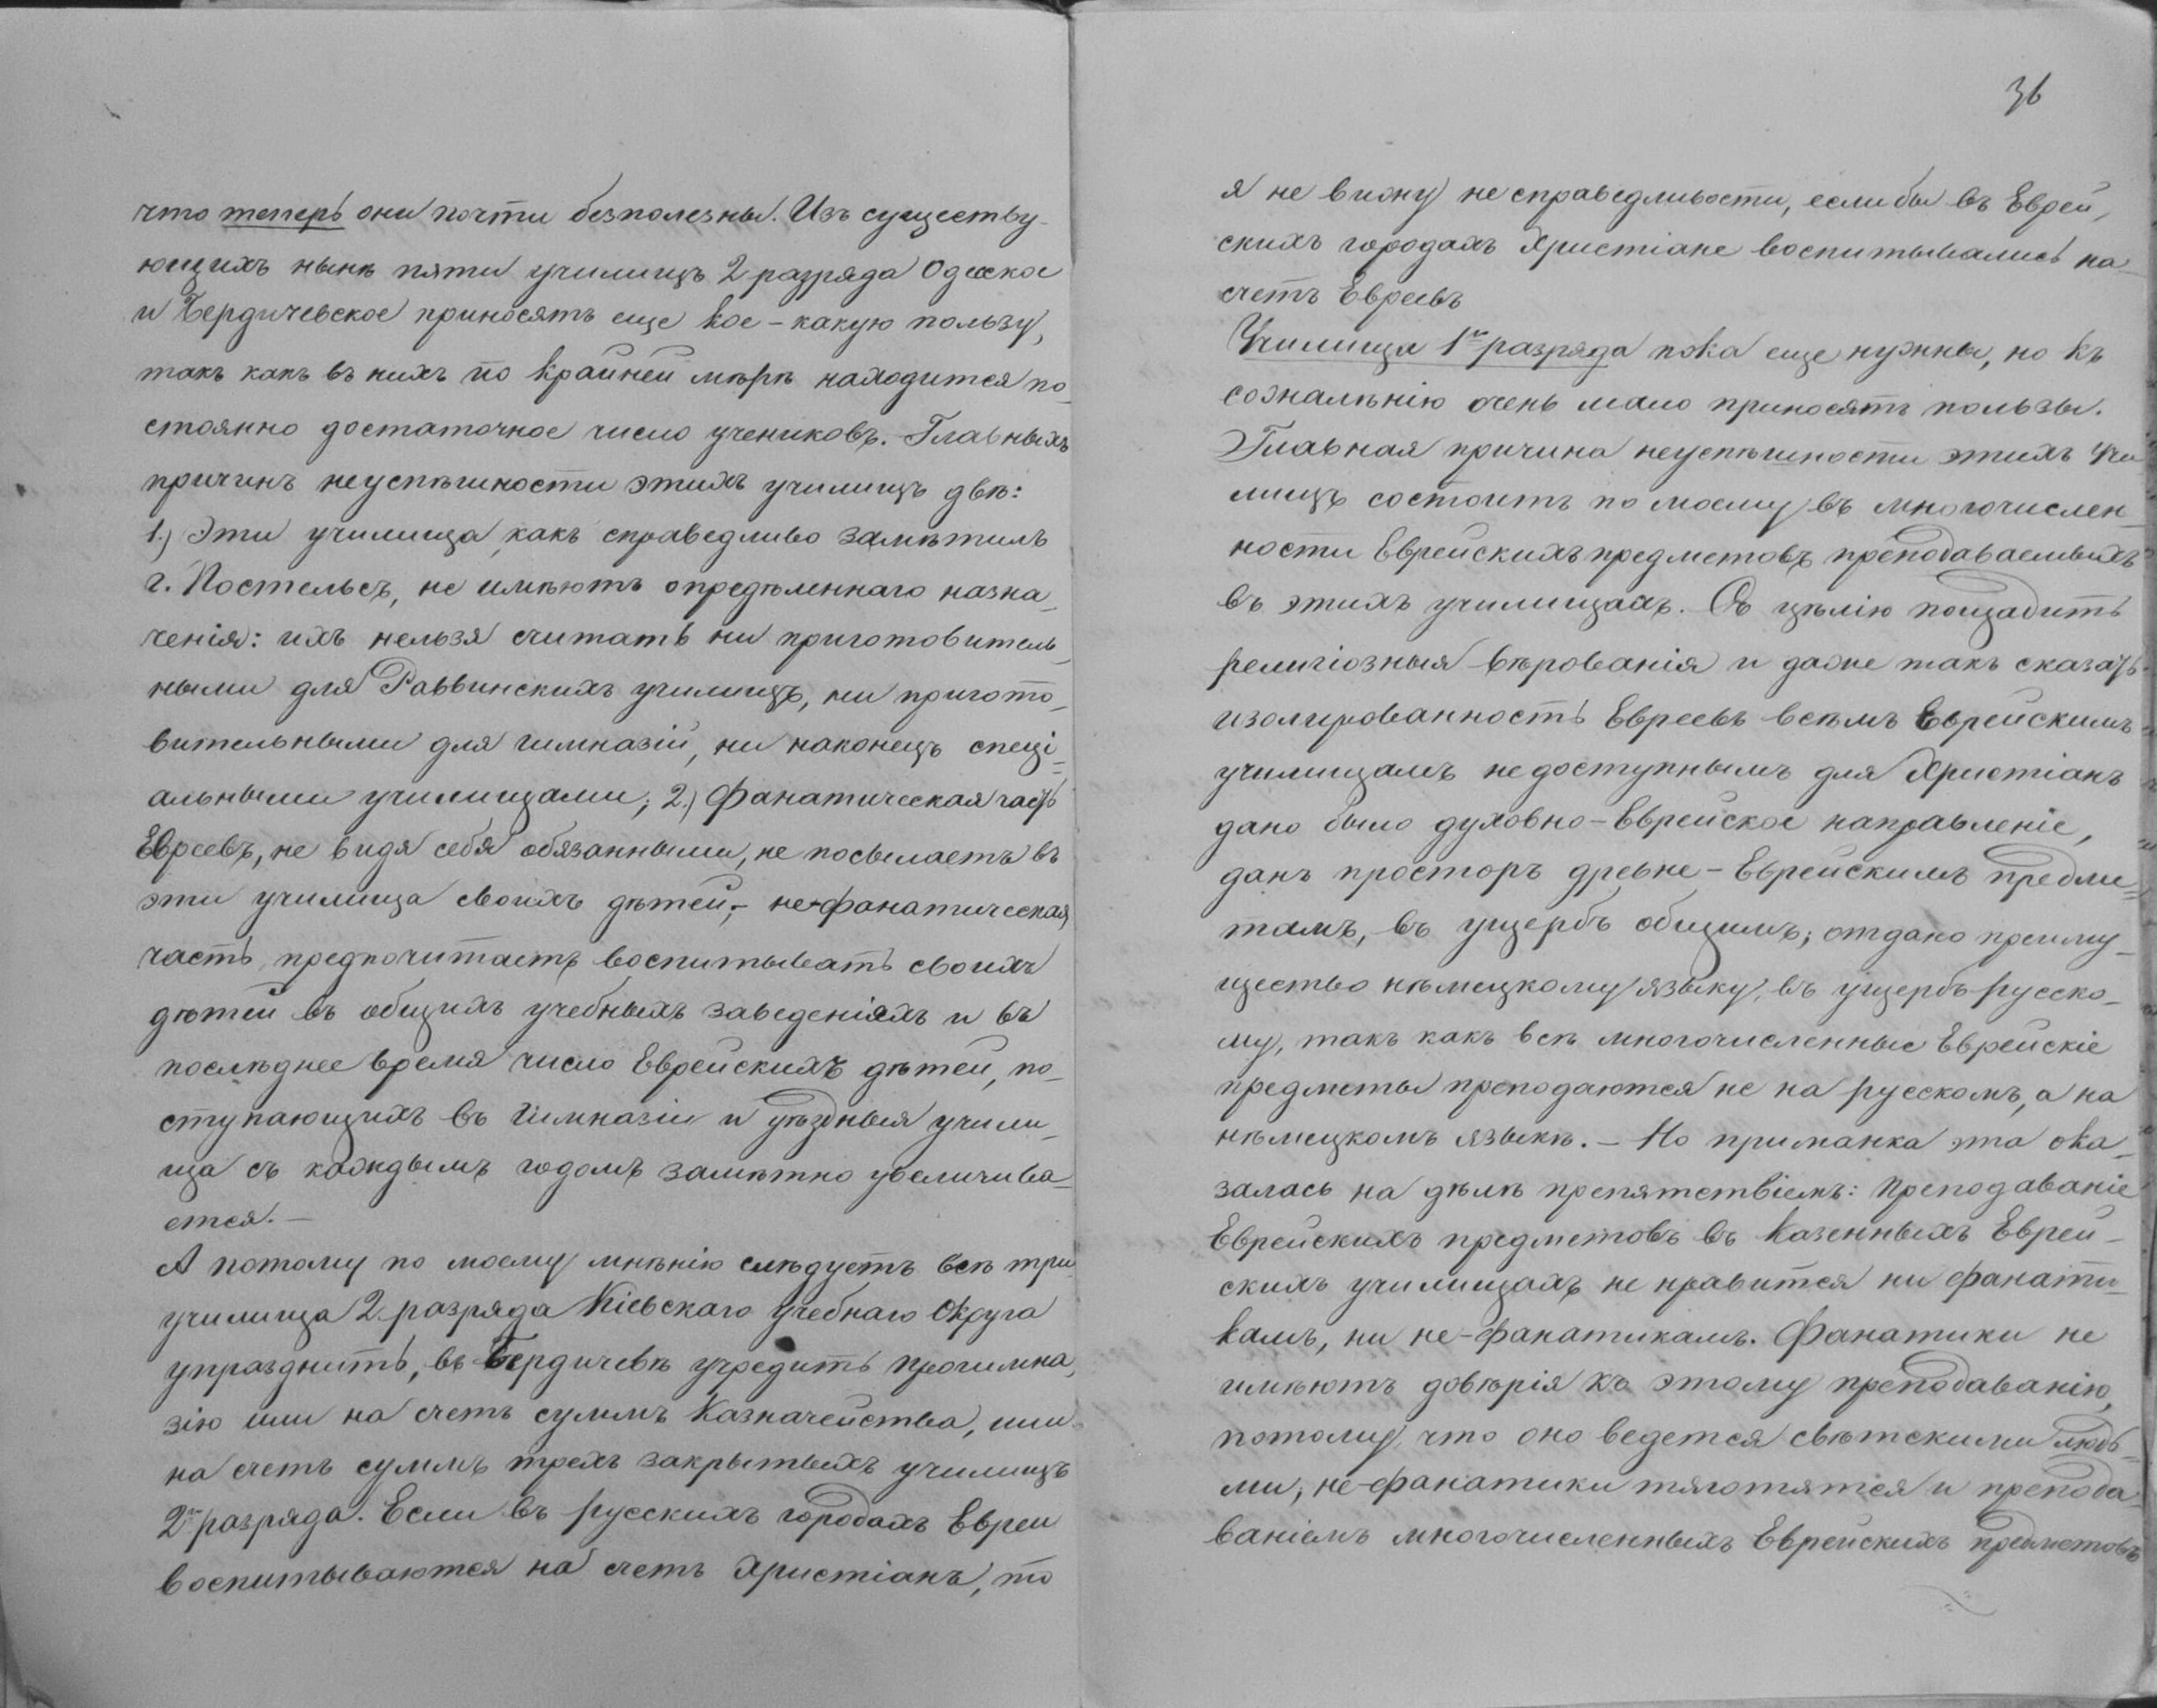 что теперь они почти безполезны. Изъ существу-
ющихъ нынѣ пяти училищъ 2 разряда Одесское
и Бердичевское приносятъ еще кое-какую пользу,
такъ какъ въ нихъ по крайней мѣрѣ находится по-
стоянно достаточное число учениковъ. Главныхъ
причинъ неуспѣшности этихъ училищъ двѣ:
1.) Эти училища, какъ справедливо замѣтилъ
г. Постельсъ, не имѣютъ опредѣленнаго назна-
ченія: ихъ нельзя считать ни приготовитель-
ными для Раввинскихъ училищъ, ни пригото-
вительными для гимназій, ни наконецъ спеці-
альными училищами; 2.) Фанатическая часть
Евреевъ, не видя себя обязанными, не посылаетъ въ
эти училища своихъ дѣтей; - не-фанатическая
часть предпочитаетъ воспитывать своихъ
дѣтей въ общихъ учебныхъ заведеніяхъ и въ
послѣднее время число Еврейскихъ дѣтей, по-
ступающихъ въ Гимназіи и уѣздныя учили-
ща съ каждымъ годомъ замѣтно увеличива-
ется. -
А потому по моему мнѣнію слѣдуетъ всѣ три
училища 2 разряда Кіевскаго учебнаго Округа
упразднить, въ Бердичевѣ учредить прогимна-
зію или на счетъ суммъ Казначейства, или
на счетъ суммъ трехъ закрытыхъ училищъ
2го разряда. Если въ русскихъ городахъ Евреи
воспитываются на счетъ Христіанъ, то
36
я не вижу не справедливости, если бы въ Еврей-
скихъ городахъ Христіане воспитывались на
счетъ Евреевъ
Училища 1го разряда пока еще нужны, но къ
сожалѣнію очень мало приносятъ пользы.
Главная причина неуспѣшности этихъ учи
лищъ состоитъ по моему въ многочислен-
ности Еврейскихъ предметовъ преподаваемыхъ
въ этихъ училищахъ. Съ цѣлію пощадить
религіозныя вѣрованія и даже такъ сказать
изолированность Евреевъ всѣмъ Еврейскимъ
училищамъ недоступнымъ для Христіанъ
дано было духовно-Еврейское направленіе,
данъ просторъ древне-Еврейскимъ предме-
тамъ, въ ущербъ общимъ; отдано преиму-
щество нѣмецкому языку, въ ущербъ русско-
му, такъ какъ всѣ многочисленные Еврейскіе
предметы преподаются не на русскомъ, а на
нѣмецкомъ языкѣ. - Но приманка эта ока-
залась на дѣлѣ препятствіемъ: преподаваніе
Еврейскихъ предметовъ въ Казенныхъ Еврей-
скихъ училищахъ не нравится ни фанати-
камъ, ни не-фанатикамъ. Фанатики не
имѣютъ довѣрія къ этому преподаванію,
потому, что оно ведется свѣтскими людь-
ми; не-фанатики тяготятся и препода-
ваніемъ многочисленныхъ Еврейскихъ предметовъ